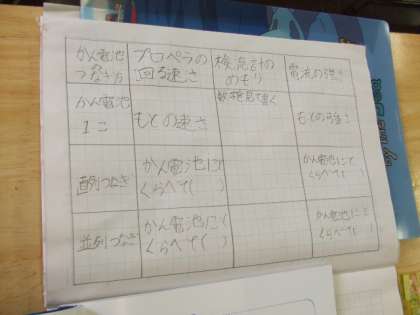 かん電池
つなぎ方
プロペラの
回る速さ
検流計の
めもり
電流の強さ
かん電池
1こ
もとの速さ
もとの強さ
直列つなぎ
かん電池1こに
くらべて( )
かん電池1こと
くらべて( )
並列つなぎ
かん電池1こに
くらべて( )
かん電池1こと
くらべて( )